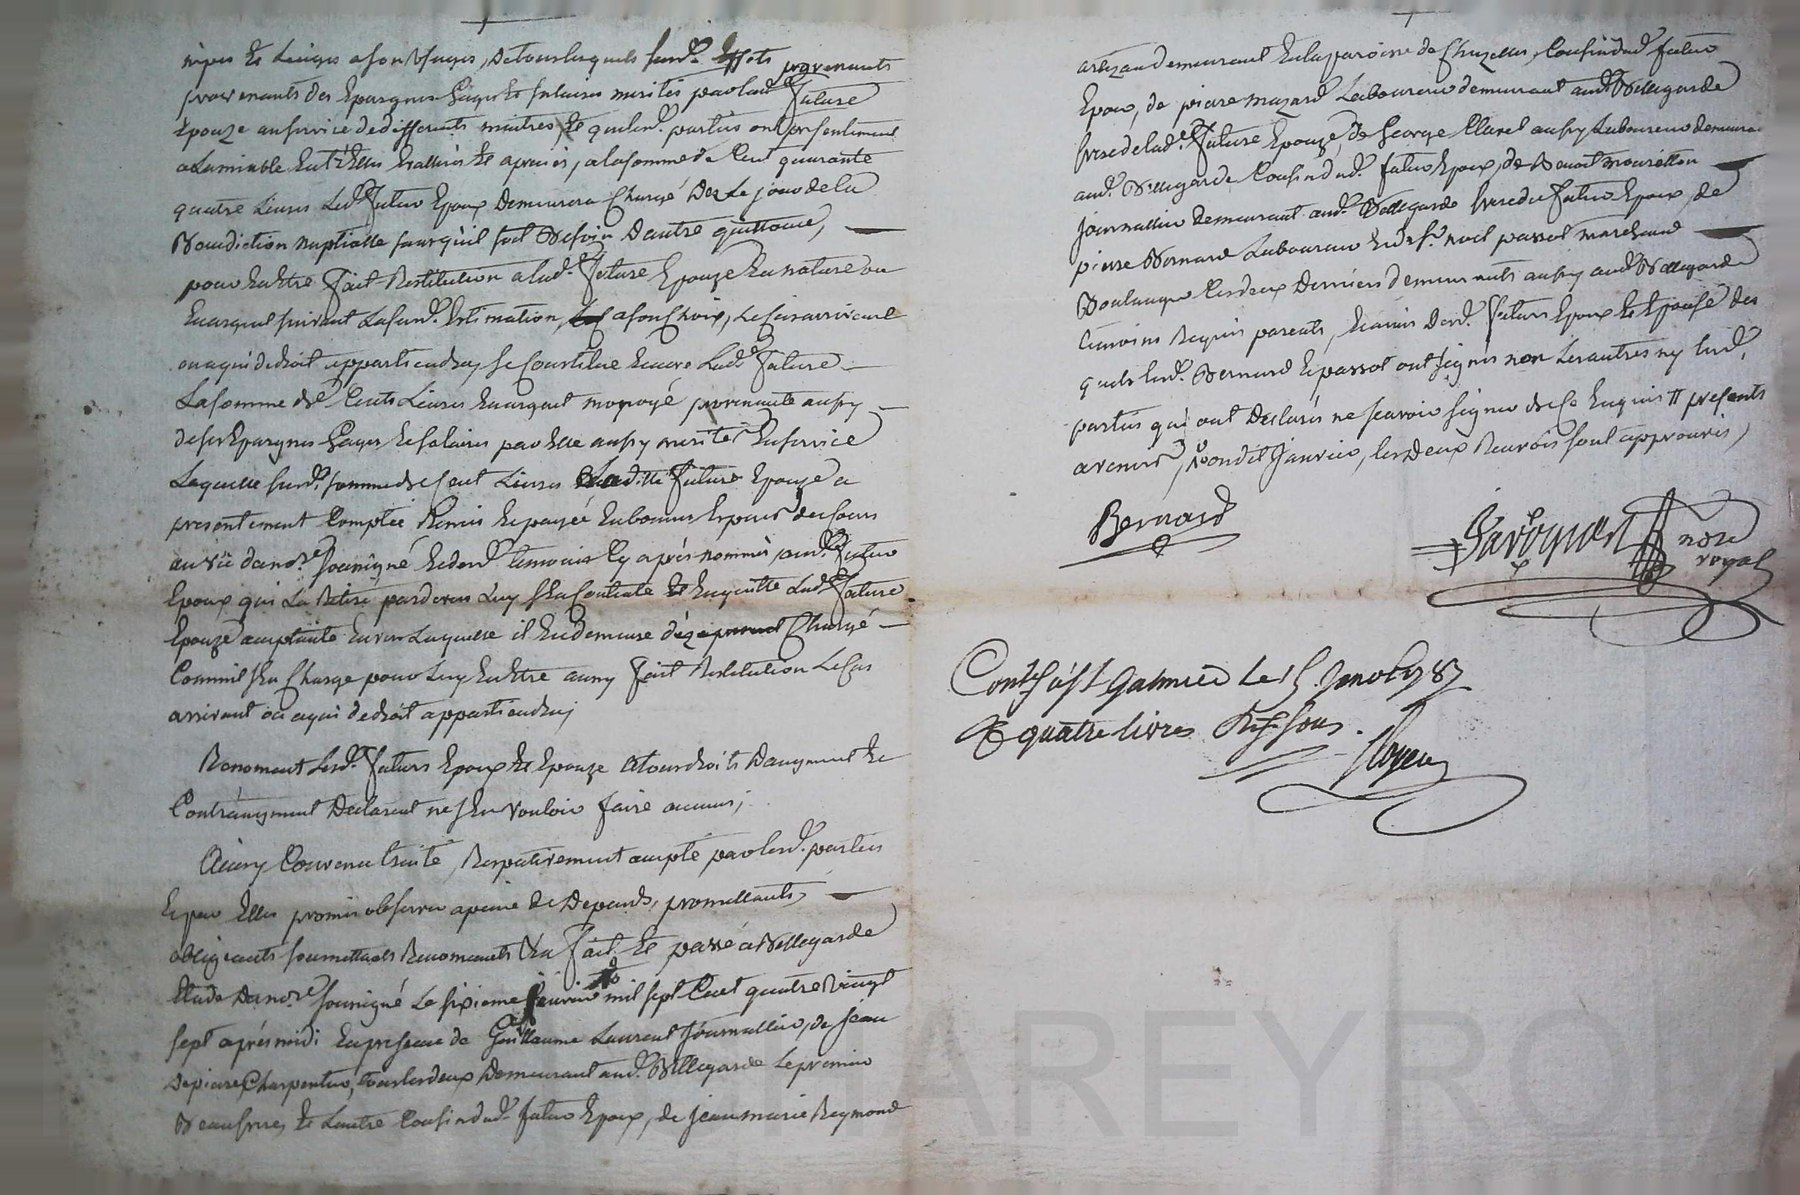 nipes et Linges a son Usages, De tous lesquels susd. Effets provenants
provenants des Epargnes Gages et salaires merités par lad.e Future
Epouze au service de differents maitres, et que lesd. parties ont presentement
a Lamiable Entre Elles Evallués et apreciés, a la somme de Cent quarante
quatre Livres Led. Futur Epoux Demeurera Chargé Dez Le jour de la
Benediction nuptialle sans qu'il soit Besoin D'autre quittance,
pour En Etre Fait Restitution a lad.e Future Epouze En nature ou
En argent suivant La susd. Estimation, a son Choix, Le Cas arrivant
ou a qui de droit appartiendra, se Constitue Encore Lad.e Future
La somme de Cents Livres En argent monoyé provenante aussy
de ses Epargnes Gages et salaires par Elle aussy merités En service
Laquelle susd. somme de Cent Livres Laditte Future Epouze a
presentement Comptée Remis et payée En bonnes Especes de Cours
au vû du no.re soussigné et des d. temoins Cy après nommés, aud. Futur
Epoux qui La Retiré pardevers Luy s'en Contente et En quitte Lad.e Future
Epouze acceptante Envers Laquelle il En demeure dez a present Chargé
Comme il s'en Charge pour Luy En Etre aussy Fait Restitution Le Cas
arrivant ou a qui de droit appartiendra;
Renoncent Lesd. Futurs Epoux et Epouze a tous droits D'augment et
Contraugment Declarent ne s'en vouloir faire aucuns;
Ainsy Convenu traité, Respectivement accepté par lesd. parties
et par Elles promis observer a peine de Depends, promettants,
obligeants soumettants Renonceants &a Fait et passé a Bellegarde
Etude Du no.re soussigné Le sixieme janvier mil sept Cent quatre Vingt
sept après midi En presence de Guillaume Laurent Journallier, de Jean
Depierre Charpentier, tous les deux Demeurant aud. Bellegarde Le premier
Beaufrere, et Lautre Cousin dud. futur Epoux, de Jean marie Reymond
artizan demeurant En la paroisse de Chazelles, Cousin dud. futur
Epoux, de pierre mazard Laboureur demeurant aud. Bellegarde
frere de lad.e Future Epouze, de George Clavel aussy Laboureur demeurant
aud. Bellegarde Cousin dud. futur Epoux, de Benoit mouretton
Journallier Demeurant aud. Bellegarde frere du Futur Epoux, de
pierre Bernard Laboureur et de s.r noel passot marchand
Boulanger Les deux Derniers demeurants aussy aud. Bellegarde
temoins Requis parents, et amis Desd. futurs Epoux et Epouse des
quels lesd. Bernard et passot ont signés non Les autres ny lesd.
parties qui ont Declarés ne scavoir signer de Ce Enquis presents
avenir, non dit Janvier, les Deux Renvois sont approuvés,
Bernard
nore
royal
Contr. à St Galmier Le 15. Janv. 1787
R quatre livres Dix sous.